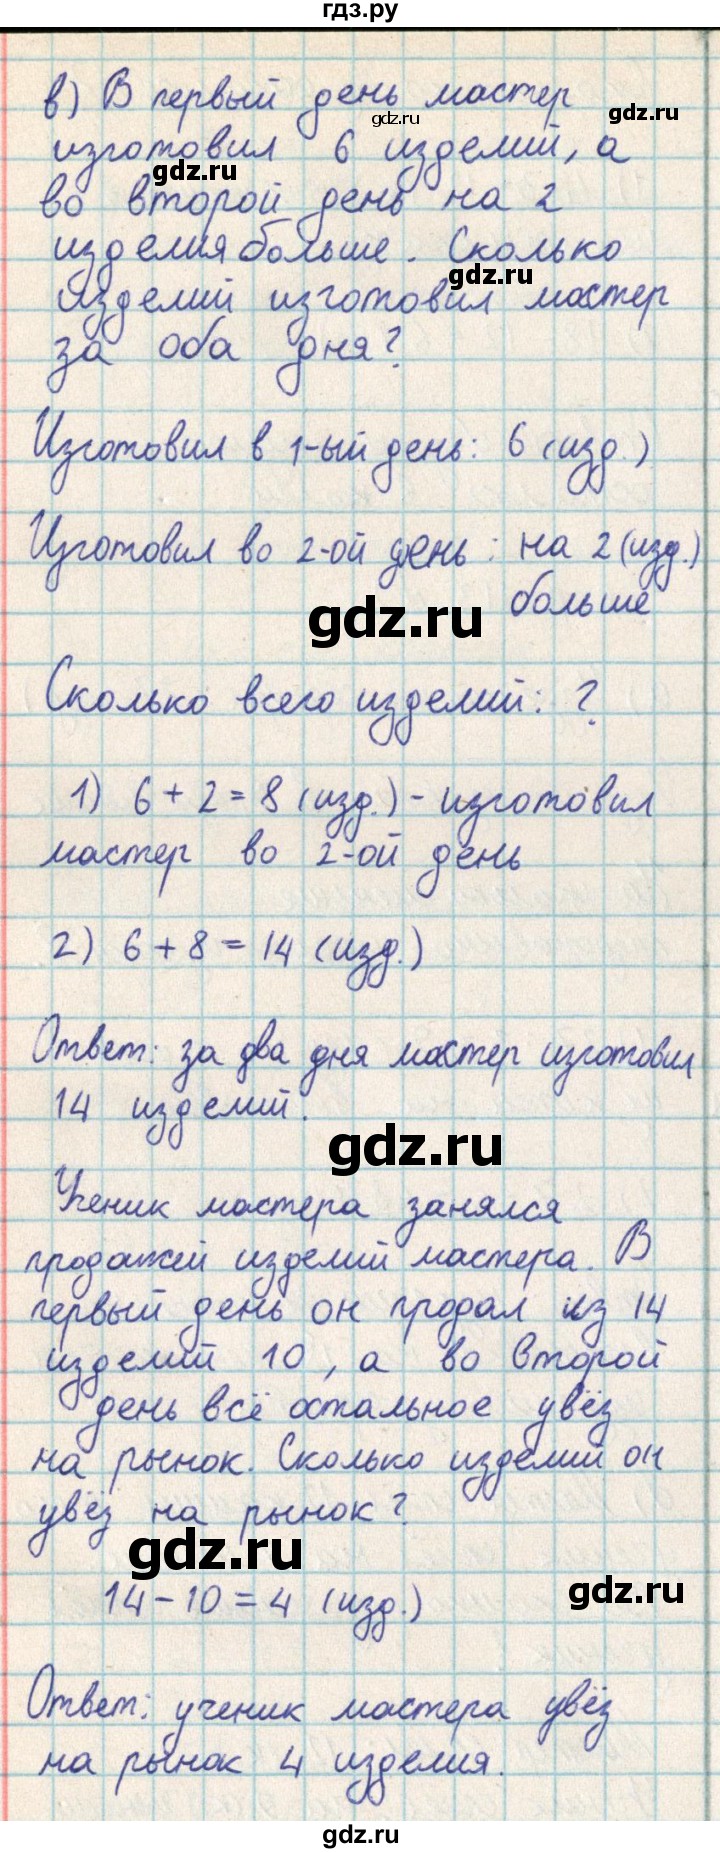 гдз.ру
в) В первый день мастер
изготовил 6 изделий, а
во второй день на 2
изделия больше. Сколько
изделий изготовил мастер
за оба дня?
Изготовил в 1-ый день: 6 (изд.)
Изготовил во 2-ой день: на 2 (изд.)
больше
Сколько всего изделий: ?
1) 6 + 2 = 8 (изд.) - изготовил
мастер во 2-ой день
2) 6 + 8 = 14 (изд.)
Ответ: за два дня мастер изготовил
14 изделий.
Ученик мастера занялся
продажей изделий мастера. В
первый день он продал из 14
изделий 10, а во второй
день всё остальное увёз
на рынок. Сколько изделий он
увёз на рынок?
14 - 10 = 4 (изд.)
Ответ: ученик мастера увёз
на рынок 4 изделия.
gdz.ru
gdz.ru
gdz.ru
gdz.ru
gdz.ru
gdz.ru
gdz.ru
gdz.ru
gdz.ru
gdz.ru